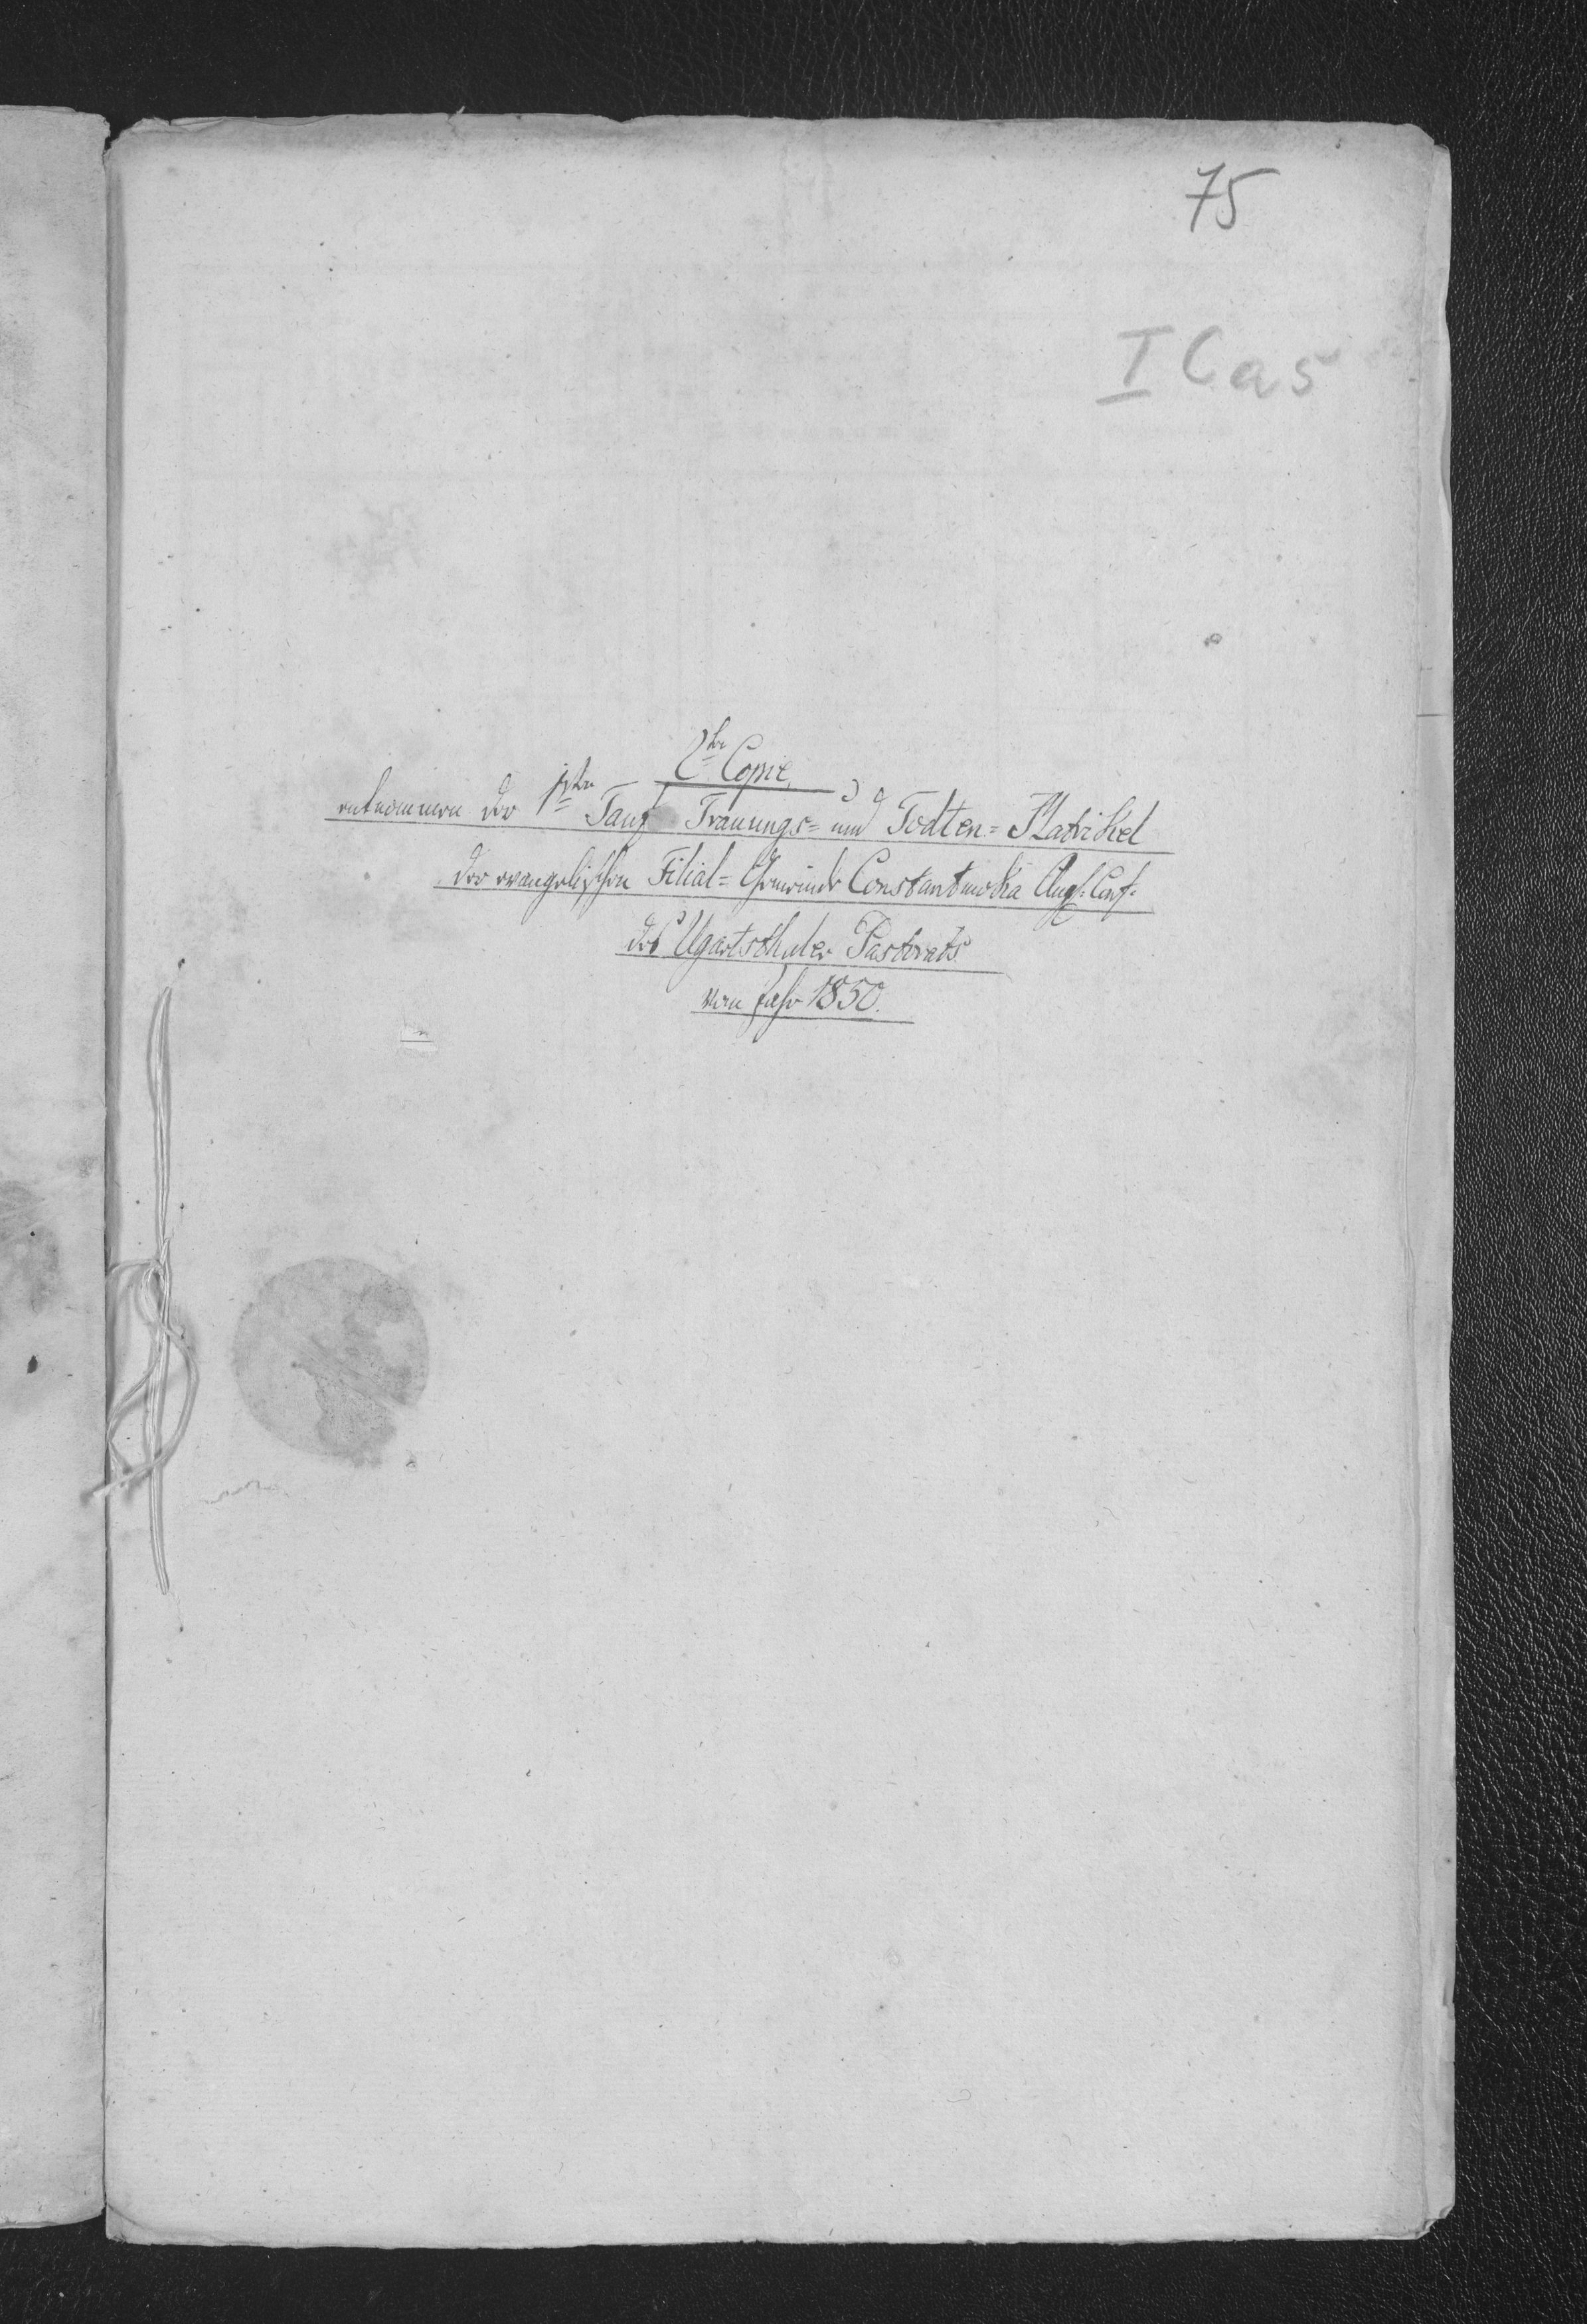 75
I Ca 5
2te Copie,
entnommen der 1ten Tauf Trauungs= und Todten= Matrikel
der evangelischen Filial= Gemeinde Constantinska Augs. Conf.
des Ugartsthaler Pastorats
vom Jahr 1850.